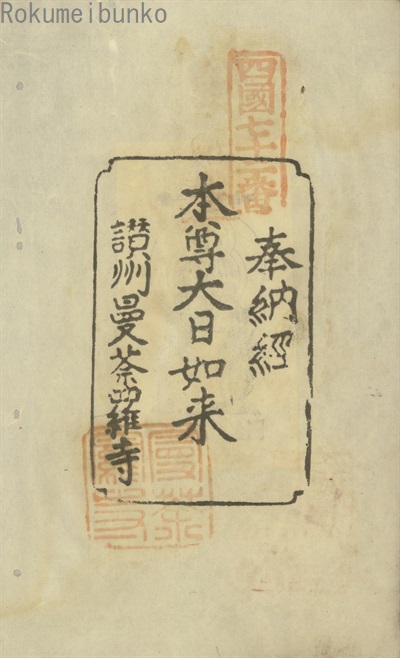 Rokumeibunko
四國七十二番
奉納経
本尊大日如来
讃州曼荼羅寺